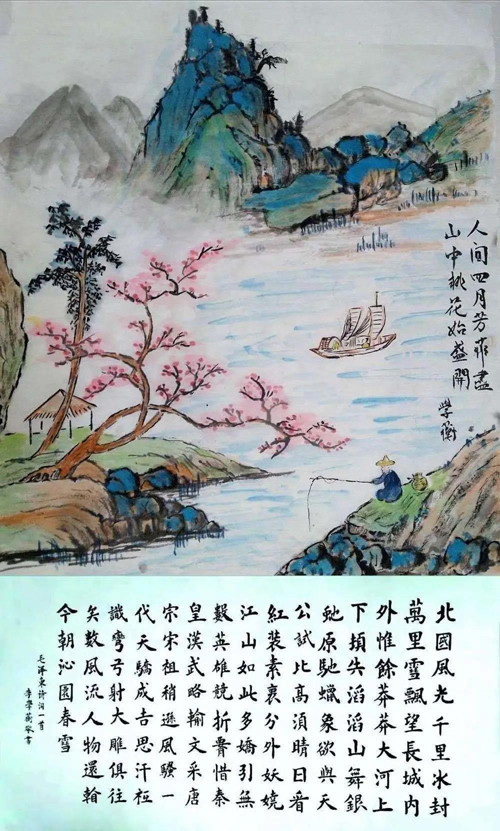 人间四月芳菲盡
山中桃花始盛開
学衡
北國風光千里冰封
萬里雪飄望長城內
外惟餘莽莽大河上
下頓失滔滔山舞銀
蛇原馳蠟象欲與天
公試比高須晴日看
紅裝素裹分外妖嬈
江山如此多嬌引無
數英雄競折腰惜秦
皇漢武略輸文采唐
宗宋祖稍遜風騷一
代天驕成吉思汗祗
識彎弓射大雕俱往
矣數風流人物還看
今朝沁园春雪
毛泽东诗词一首
李學衡敬書